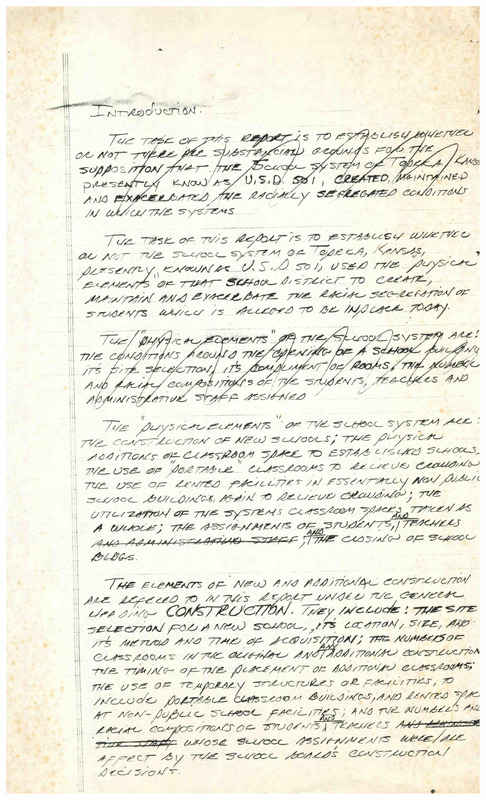 INTRODUCTION.
THE TASK OF THIS REPORT IS TO ESTABLISH WHETHER
OR NOT THERE ARE SUBSTANCIAL GROUNDS FOR THE
SUPPOSITION THAT THE SCHOOL SYSTEM OF TOPEKA, KANSAS
PRESENTLY KNOW AS U.S.D. 501, CREATED, MAINTAINED
AND EXACERBATED THE RACIALLY SEGREGATED CONDITIONS
IN WHICH THE SYSTEMS
THE TASK OF THIS REPORT IS TO ESTABLISH WHETHER
OR NOT THE SCHOOL SYSTEM OF TOPEKA, KANSAS,
PRESENTLY KNOWN AS U.S.D 501, USED THE "PHYSICAL
ELEMENTS" OF THAT SCHOOL DISTRICT TO CREATE,
MAINTAIN AND EXACERBATE THE RACIAL SEGREGATION OF
STUDENTS WHICH IS ALLEGED TO BE IN PLACE TODAY.
THE "PHYSICAL ELEMENTS" OF THE SCHOOL SYSTEM ARE:
THE CONDITIONS AROUND THE OPENING OF A SCHOOL BUILDING
ITS SITE SELECTION, ITS COMPLIMENT OF ROOMS, THE NUMBER
AND RACIAL COMPOSITIONS OF THE STUDENTS, TEACHERS AND
ADMINISTRATIVE STAFF ASSIGNED
THE "PHYSICAL ELEMENTS" OF THE SCHOOL SYSTEM ARE:
THE CONSTRUCTION OF NEW SCHOOLS; THE PHYSICAL
ADDITIONS OF CLASSROOM SPACE TO ESTABLISHED SCHOOLS
THE USE OF "PORTABLE" CLASSROOMS TO RELIEVE CROWDING
THE USE OF RENTED FACILITIES IN ESSENTIALLY NON PUBLIC
SCHOOL BUILDINGS, AGAIN TO RELIEVE CROWDING; THE
UTILIZATION OF THE SYSTEMS CLASSROOM SPACE, TAKEN AS
A WHOLE; THE ASSIGNMENTS OF STUDENTS, AND TEACHERS
AND ADMINISTRATIVE STAFF; AND THE CLOSING OF SCHOOL
BLDGS.
THE ELEMENTS OF NEW AND ADDITIONAL CONSTRUCTION
ARE REFERED TO IN THIS REPORT UNDER THE GENERAL
HEADING CONSTRUCTION. THEY INCLUDE: THE SITE
SELECTION FOR A NEW SCHOOL, ITS LOCATION, SIZE, AND
ITS METHOD AND TIME OF ACQUISITION; THE NUMBERS OF
CLASSROOMS IN THE ORIGINAL AND ADDITIONAL CONSTRUCTION
THE TIMING OF THE PLACEMENT OF ADDITIONAL CLASSROOMS;
THE USE OF TEMPORARY STRUCTURES OR FACILITIES, TO
INCLUDE PORTABLE CLASSROOM BUILDINGS, AND RENTED SPACE
AT NON-PUBLIC SCHOOL FACILITIES; AND THE NUMBERS AND
RACIAL COMPOSITIONS OF STUDENTS, AND TEACHERS AND ADMINISTRA-
TIVE STAFF WHOSE SCHOOL ASSIGNMENTS WERE/ARE
AFFECT BY THE SCHOOL BOARD'S CONSTRUCTION
DECISIONS.